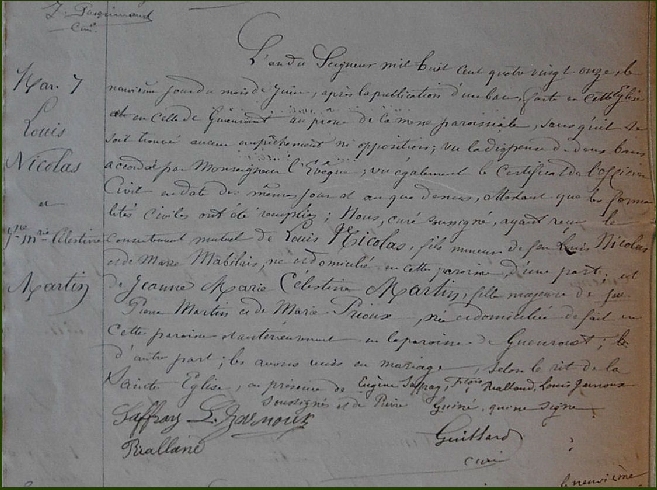 Curé
L'an du Seigneur mil huit cent quatre vingt onze, le
Mar. 7
neuvième jour du mois de Juin, après la publication d'un ban, faite en cette Eglise
et en celle de Guenroët au prône de la messe paroissiale, sans qu'il se
Louis
soit trouvé aucun empêchement ni opposition; vu la dispense de deux bans
Nicolas
accordée par Monseigneur l'Evêque; vu également le Certificat de l'officier
Civil en date des mêmes jour et an que dessus, attestant que les forma
et
lités civiles ont été remplies; Nous, curé soussigné, ayant reçu le
Jne Mie Célestine
consentement mutuel de Louis Nicolas, fils mineur de feu Louis Nicolas
et de Marie Mabilais, né et domicilié en cette paroisse d'une part; et
Martin
de Jeanne Marie Célestine Martin, fille majeure de feu
Pierre Martin et de Marie, née et domiciliée de fait en
cette paroisse et antérieurement en la paroisse de Guenroët;
d'autre part; les avons unis en mariage, selon le rit de la
Sainte Eglise, en présence de Eugène Jaffray, Rialland, Louis Garnoux
soussignés et de Pierre Guiné, qui ne signe.
Jaffray L. Garnoux
Guillard
Rialland
curé
le neuvième